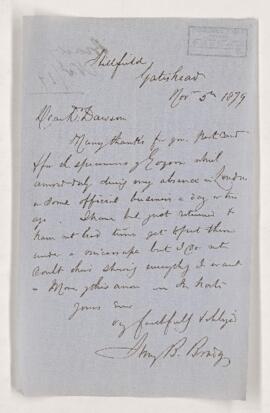 Hillfield
Gateshead
Nov 5th 1879
Dear Dr Dawson
Many thanks for yr. Post Card
& for the specimens of Eozoon which
arrived duly during my absence in London
on some official business a day or two
ago. I have but just returned &
have not had time yet to put them
under a microscope but I do not
doubt their showing everything I want
yours ever
very faithfully & obliged
Henry B. Brady